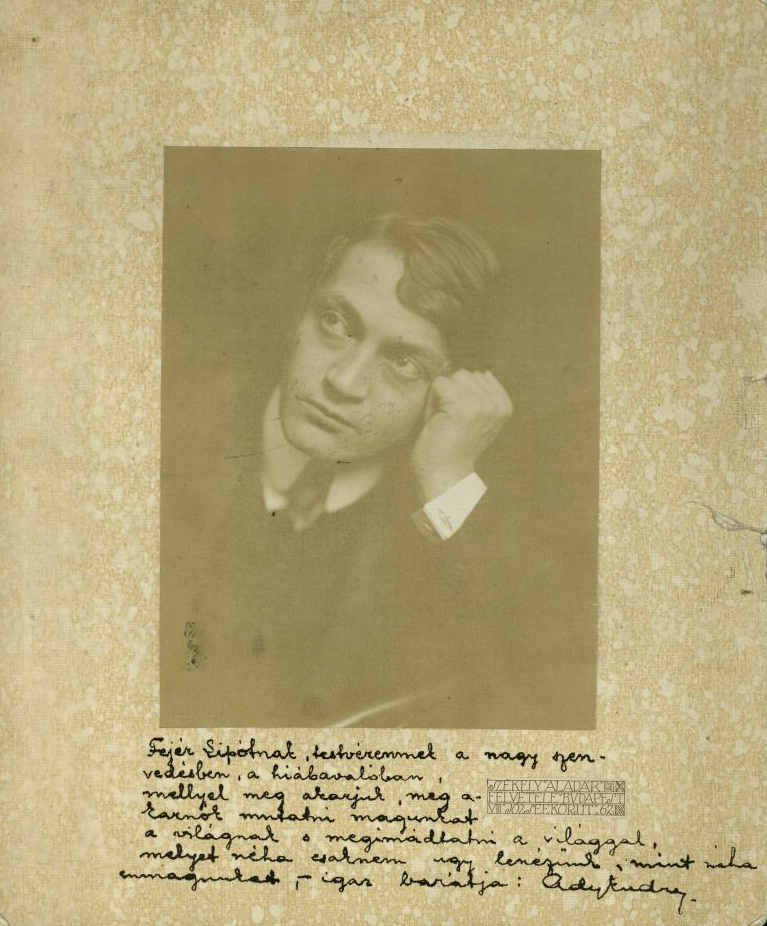 Fejér Lipótnak, testvéremnek a nagy szen-
vedésben, a hiábavalóban,
mellyel meg akarjuk, meg a-
karnók mutatni magunkat
a világnak s megimádtatni a világgal,
melyet néha csaknem ugy lenézünk, mint néha
enmagunkat, – igaz barátja: Ady Endre.
SZÉKELY ALADÁR
FELVÉTELE BUDAPEST
VIII JÓZSEF KÖRÚT 62